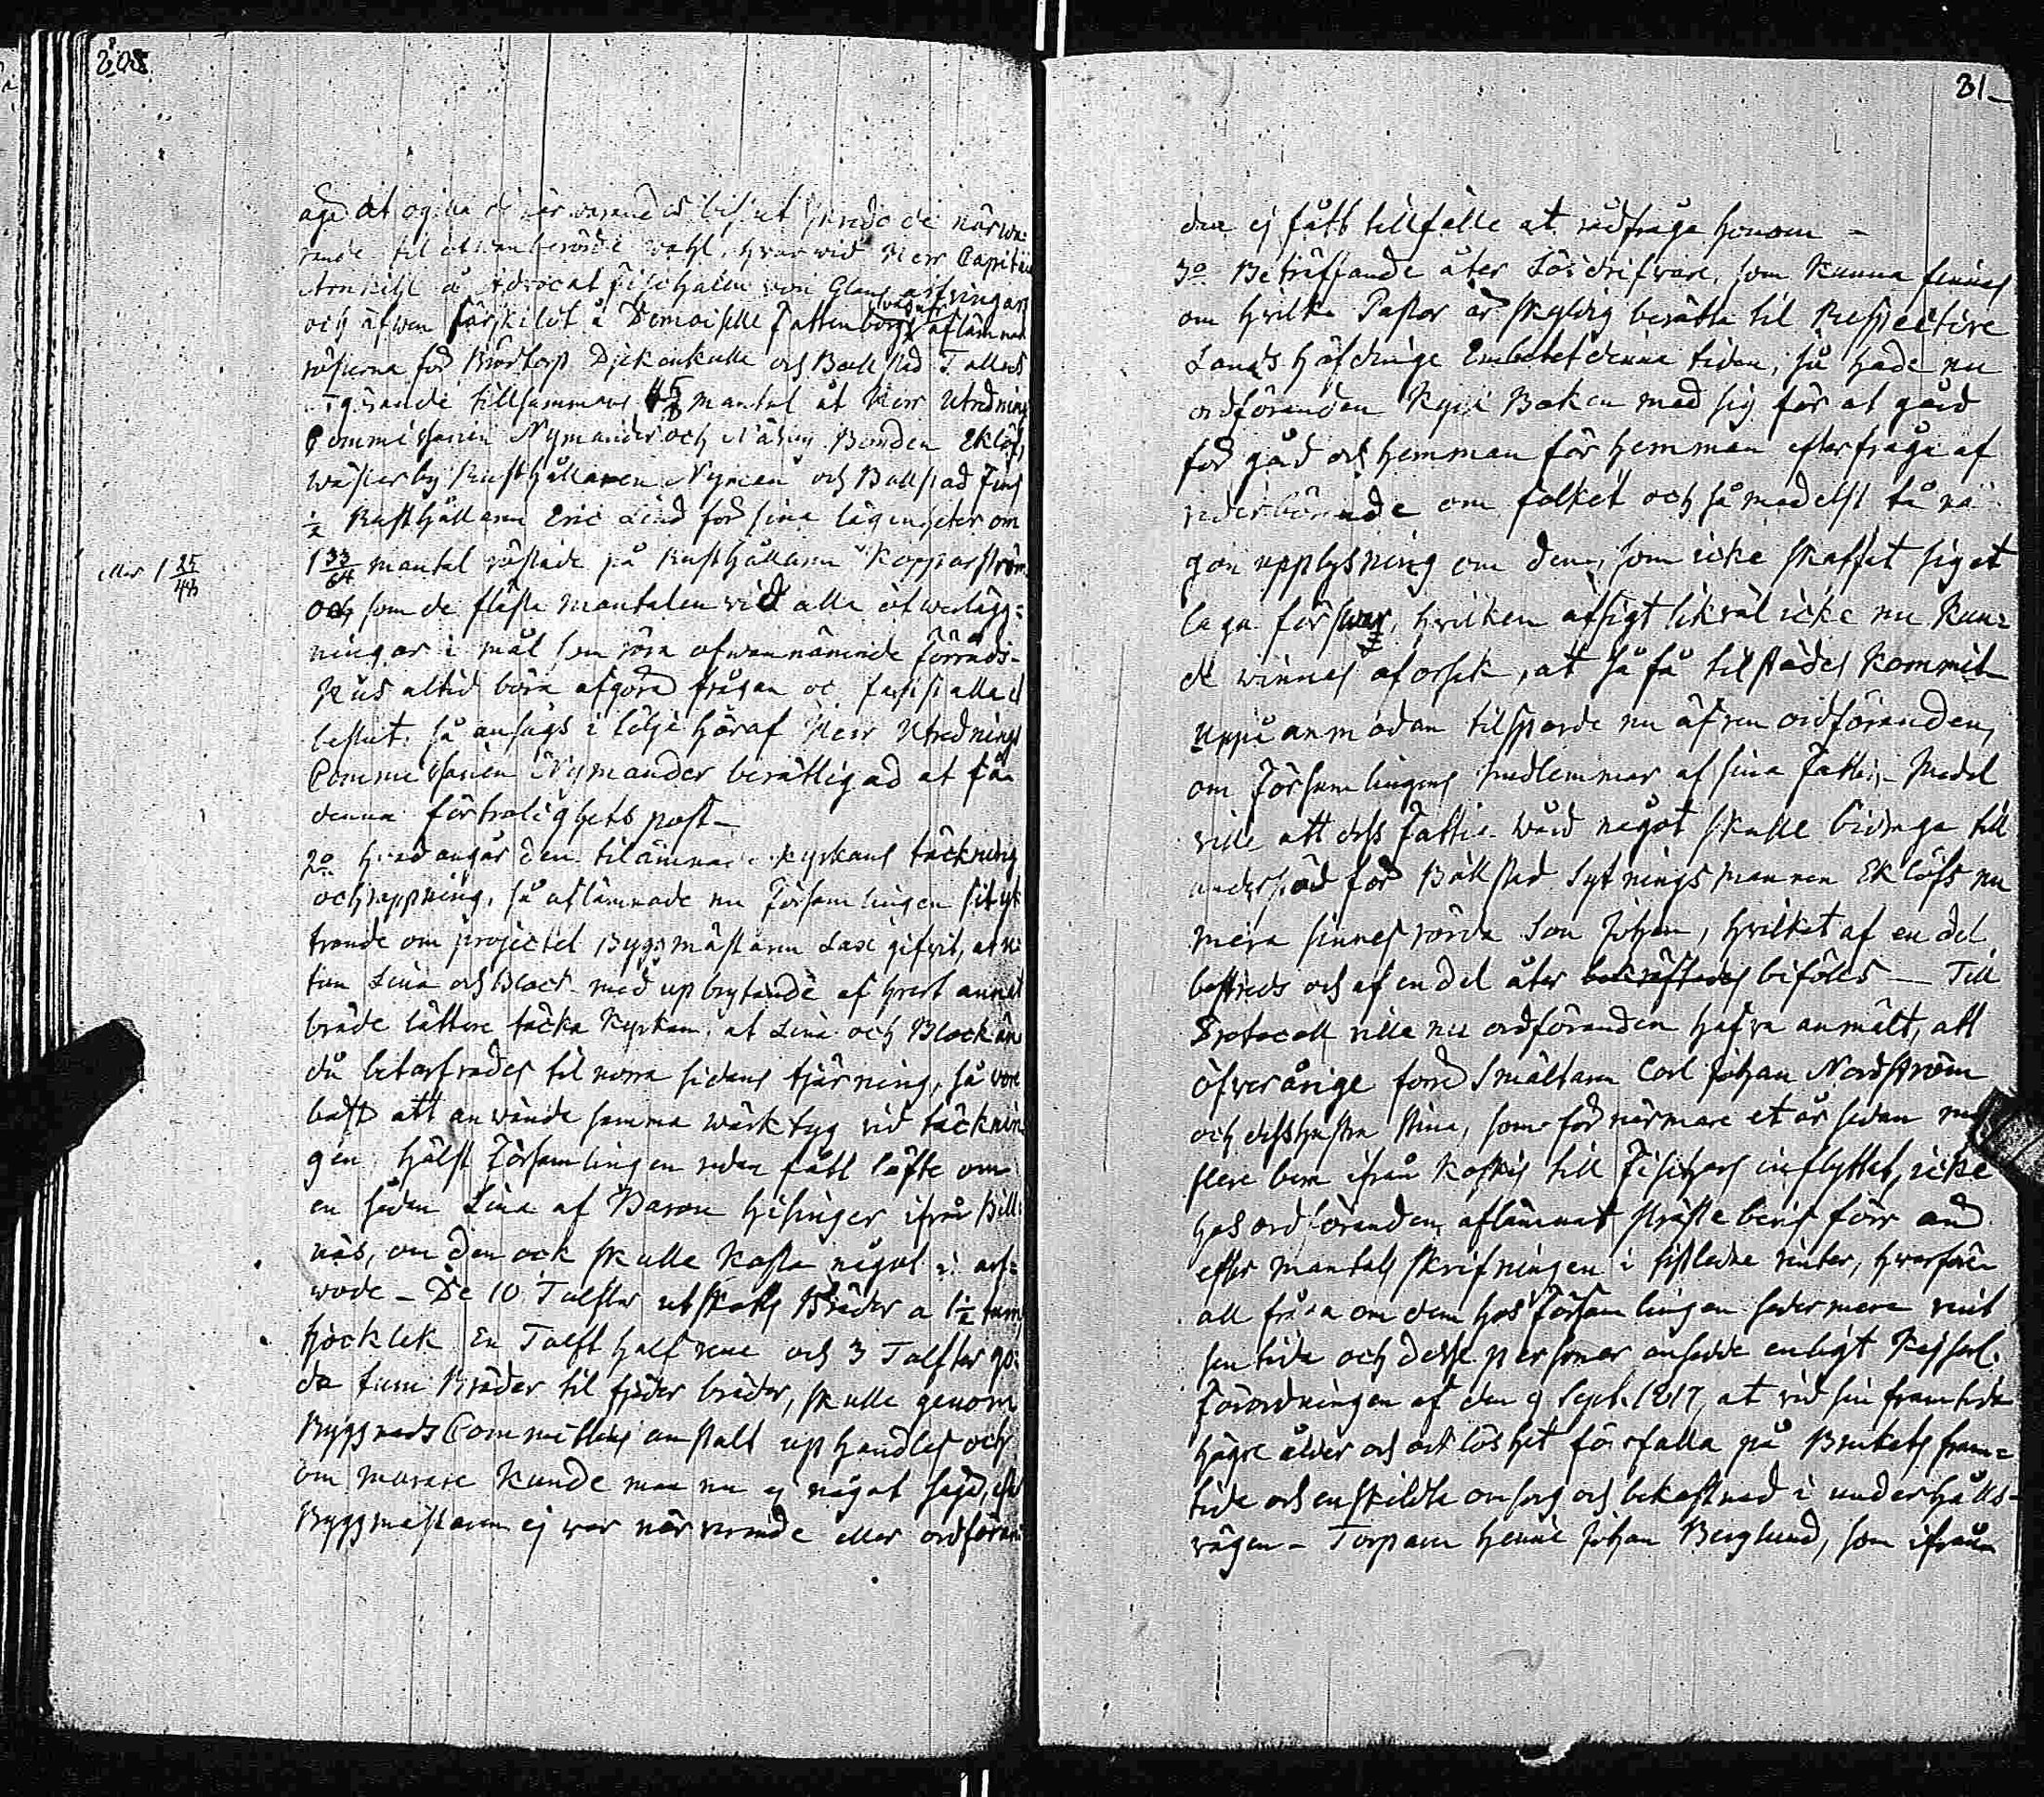 208
äga at ogilla de närvarandes beslut skrede de närwa=
rande til ofwanberörde wahl, hvarwid Herr Capiten
Arnkihl å Advocat fiscalen von Glans arfvingars
och äfwen särskildt å Demoiselle Fattenborgs vägnar aflämnade
rösterna för Brödtorp Djekenkulle och Ballstad Tallnäs
utgörande tillsammans mantal åt Herr Utrednings
Commissarien Nymander och Näsby Bonden Eklöf,
Wästerby Rusthållaren Nyman och Ballstad Jins
1/2 Rusthållaren Eric Lind för sina lägenheter om
1 33/64 mantal röstade på Rusthållaren Kopparström.
eller 1 25/48
och som de flästa mantalen vid alla öfwerlägg=
ningar i mål som röra ofwannämnde Förråds-
Hus altid böra afgöra frågan och fastställa et
beslut, så ansågs i följe häraf Herr Utrednings
Commissarien Nymander berättigad at få
denna förtrolighets post-
2o Hvad angår den tilämnade kyrkans täckning
och rappning, så aflämnade nu Församlingen sit yt
trande om projectet Byggmästaren Lax gifvit, at u=
tan Lina och Block med upbrytande af hvart annat
bräde lättare täcka Kyrkan, at Lina och Block än
då behöfvades til norra sidans tjärning, så vore
bäst att anwända samma wärktyg vid täcknin=
gen hälst Församlingen redan fått löfte om
en sådan Lina af Baron Hisinger ifrån Bill=
näs, om den ock skulle kosta något i arf=
wode - De 10 Tolfter utskotts Bräder a 1 1/2 tums
tjocklek En Tolft half rene och 3 Tolfter go=
da tums Bräder til fjäder bräder, skulle genom
Byggnads Committens anstalt uphandlas och
om murare kunde man nu ej något säga, efter
Byggmästaren ej war närvarande eller ordföran=
31
den ej fått tillfälle at rådfråga honom -
3o Beträffande åter Lösdrifvare, som kunna finnas
om hvilka Pastor är skyldig berätta til Respective
Lands Höfdinge Embetet denna tiden, så hade nu
ordföranden Kyrko Boken med sig för at gård
för gård och hemman för hemman efterfråga af
vederbörande om folket och så medelst få nå
gon upplysning om dem, som icke skaffat sig et
laga försvar, hvilken afsigt likväl icke nu kun=
de winnas af orsak, at så få tilstädes kommit
uppå anmodan tilsporde nu äfven ordföranden,
om Församlingens medlemmar af sina Fattig Medel
ville att dess Fattig wård något skulle bidraga till
understöd för Bällstad Sytningsmannen Eklöfs nu
mera sinnesrörda Son Johan, hvilket af en del
bestreds och af en del åter bekräftades biföles - Till
Protocoll ville nu ordföranden hafva anmält, att
öfverårige förre Smältaren Carl Johan Nordström
och dess hustru Stina, som för närmare et år sedan med
flere barn ifrån Koskis till Fiskars inflyttat, icke
hos ordföranden aflämnat Präste bevis förr änd
efter mantals skrifningen i sistledne vinter, hvarföre
all fråga om dem hos Församlingen sedermera varit
sen tida och desse personer ansedde enligt Kejserl.
Förordningen af den 9 Sept. 1817, at vid sin framtida
högre ålder och orklöshet förfalla på Brukets fram=
tida och enskildta omsorg och bekostnad i underhålls-
vägen - Torparen Henric Johan Berglund, som ifrån